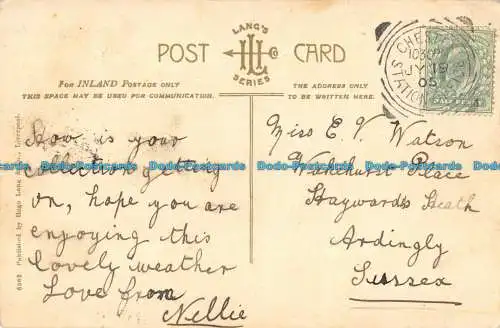 LANG'S
POST CARD
LHL
SERIES
FOR INLAND POSTAGE ONLY
THIS SPACE MAY BE USED FOR COMMUNICATION.
THE ADDRESS ONLY
TO BE WRITTEN HERE.
CHESTER
JY 19
05
STATION
HALF PENNY
How is your
collection getting
on, hope you are
enjoying this
lovely weather
Love from
Nellie
Miss E V Watson
Wakehurst Place
Haywards Heath
Ardingly
Sussex
Published by Hugo Lang & Co., Liverpool.
Dodo-Postcards Dodo-Postcards Dodo-Postcards Dodo-Postcards